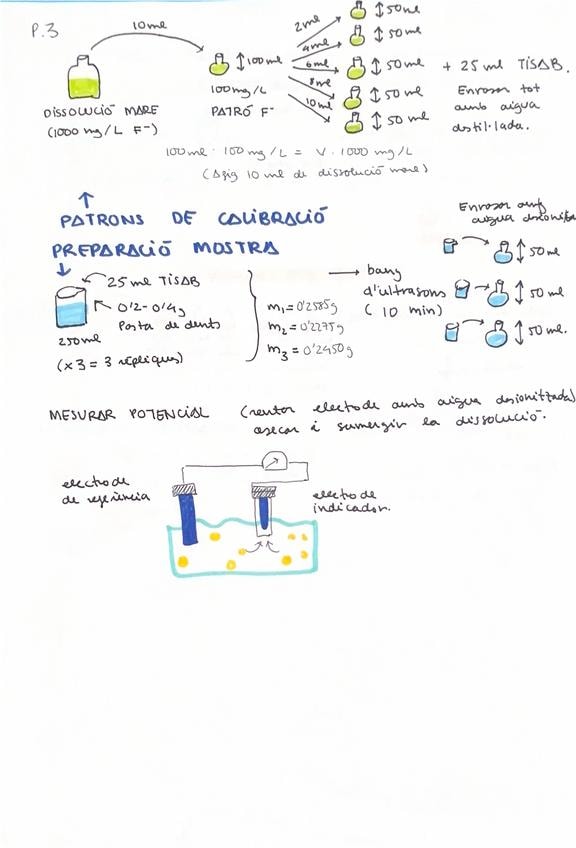 P.3
10ml
2ml
4ml
6ml
8ml
10ml
↕50ml
↕50ml
↕50ml
↕50ml
↕50ml
↕100ml
100mg/L
PATRÓ F⁻
DISSOLUCIÓ MARE
(1000 mg/L F⁻)
+ 25 ml TISAB.
Enrasar tot
amb aigua
destil·lada.
100ml · 100mg/L = V · 1000 mg/L
(Agfg 10 ml de dissolució mare)
PATRONS DE CALIBRACIÓ
PREPARACIÓ MOSTRA
25 ml TISAB
0'2-0'4g
Pasta de dents
250ml
(x3 = 3 rèpliques)
m₁ = 0'2585g
m₂ = 0'2275g
m₃ = 0'2450g
→ bany
d'ultrasons
(10 min)
Enrasar amb
aigua desionitza
↕50ml
↕50ml
↕50ml.
MESURAR POTENCIAL (rentar electrode amb aigua desionitzada)
assecar i sumergir la dissolució.
electrode
de referència
electrode
indicador.